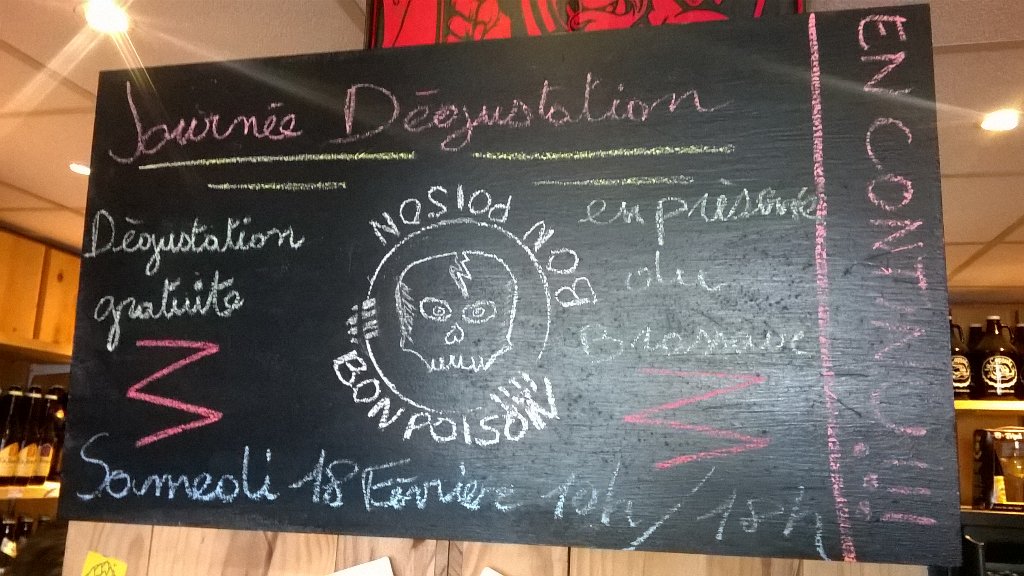 Journée Dégustation
Dégustation
gratuite
NO BO POISON
BON POISON
en présence
du
Brasseur
Samedi 18 Février 10h/18h
EN CONTINU!!!